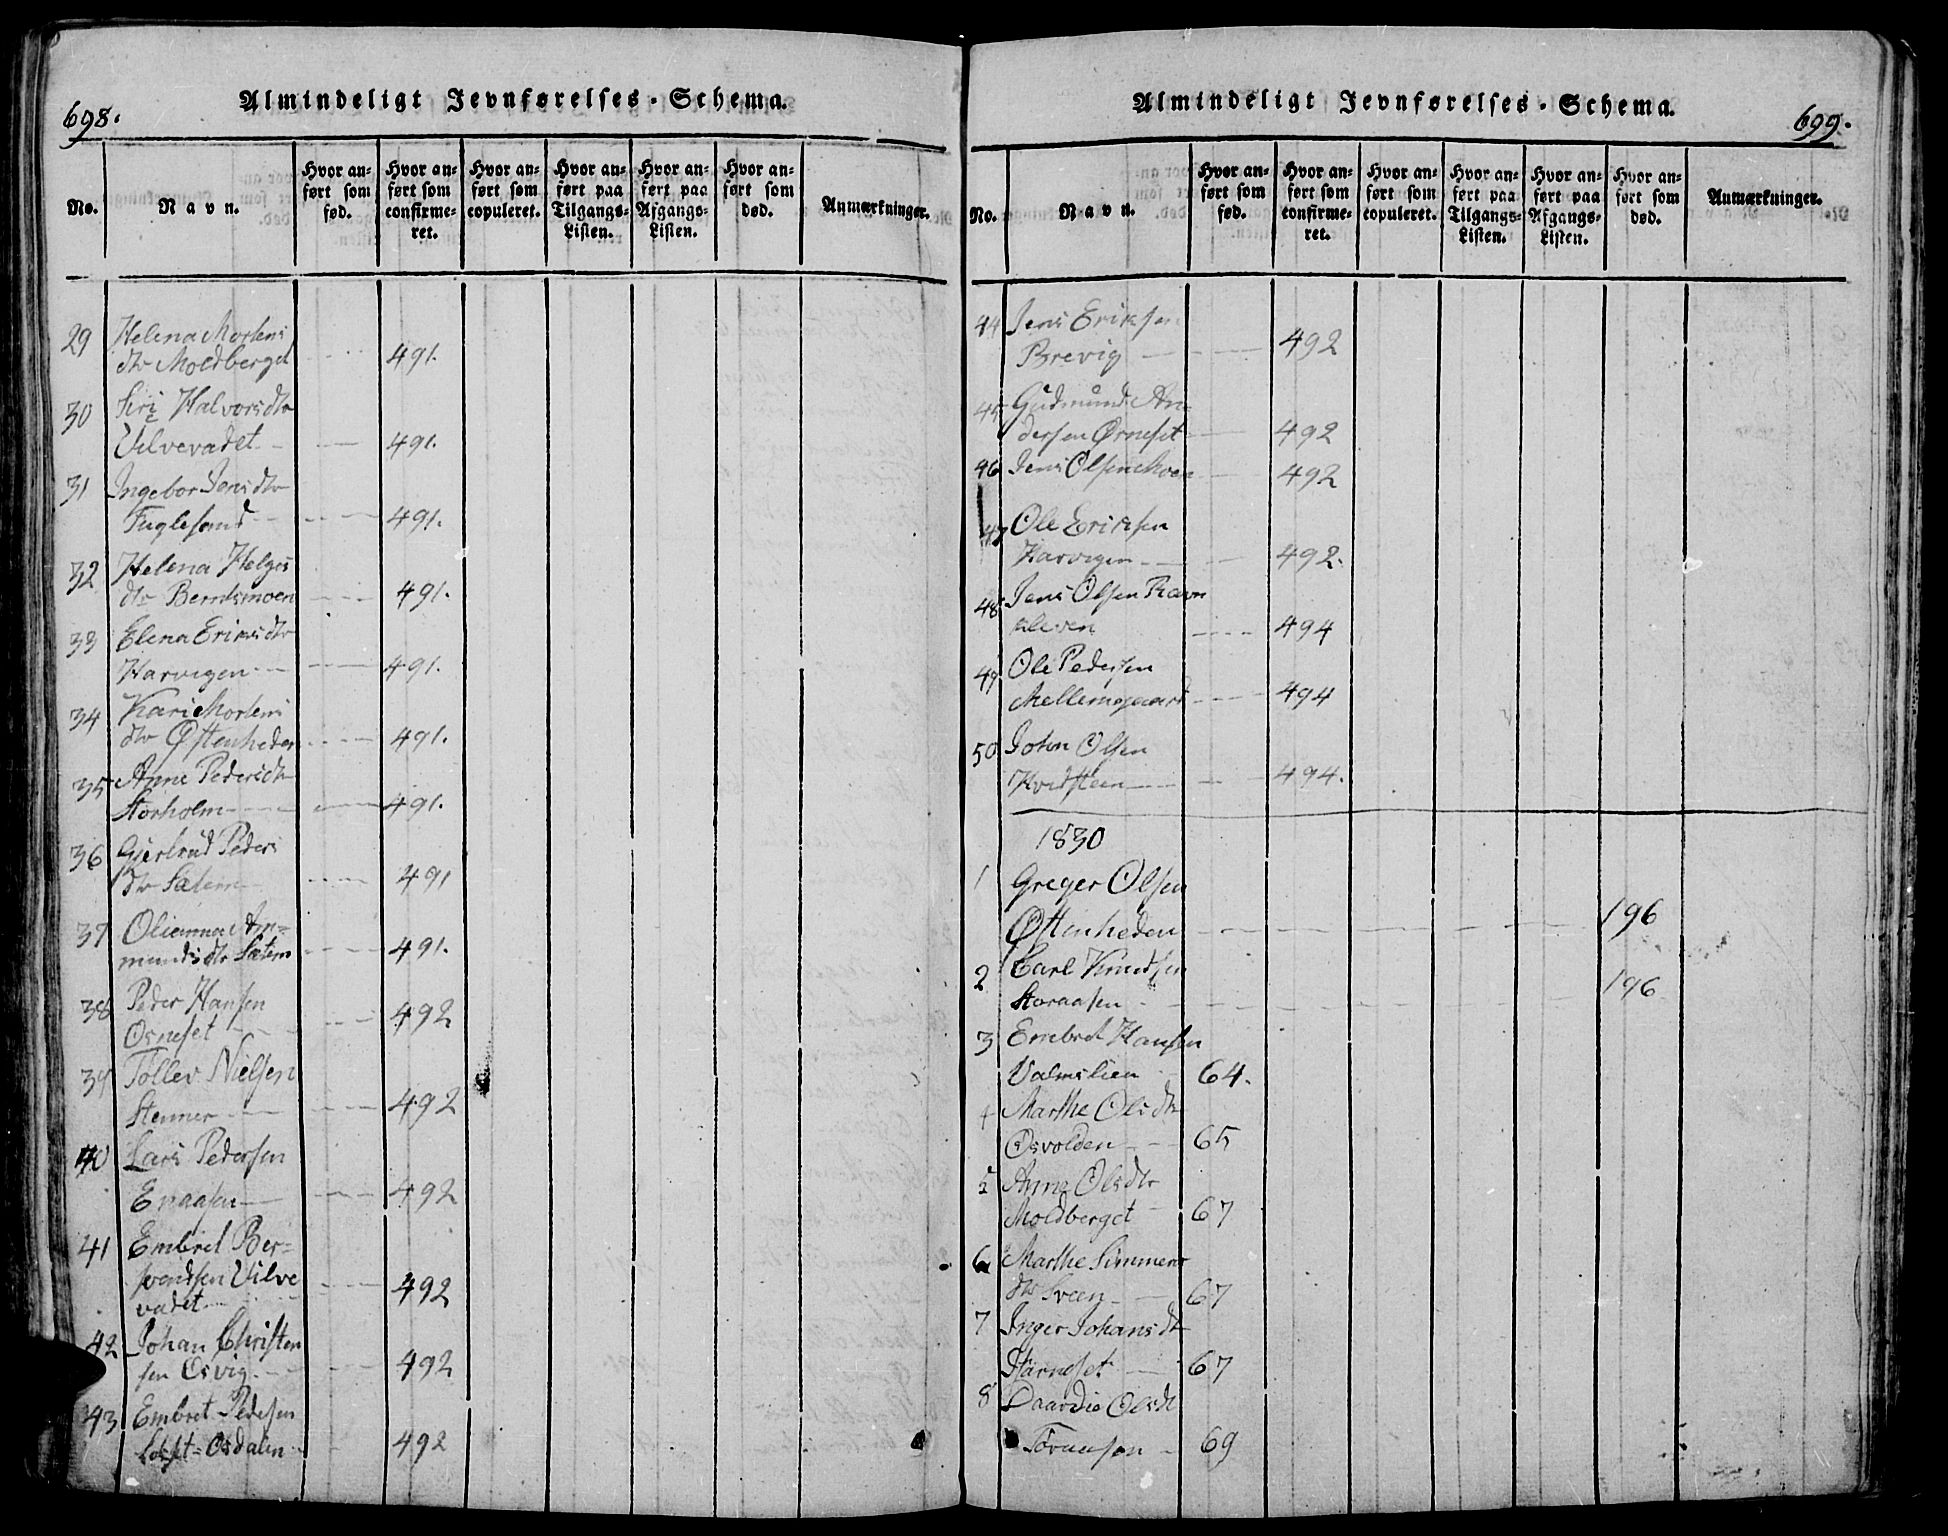 698.
Almindeligt Jevnførelses-Schema.
No.
Navn.
Hvor an-
ført som
fød.
Hvor an-
ført som
confirme-
ret.
Hvor an-
ført som
copuleret.
Hvor an-
ført paa
Tilgangs-
Listen.
Hvor an-
ført paa
Afgangs-
Listen.
Hvor an-
ført som
død.
Anmærkninger.
29 Helena Mortens
dtr Moldberget 491.
30 Siri Halvorsdtr
Ulvevadet 491.
31 Ingebor Jensdtr
Fuglesand 491.
32 Helena Helges
dtr Berntsmoen 491.
33 Elena Eriksdtr
Harvigen 491.
34 Kari Mortens
dtr Østenheden 491.
35 Anne Pedersdtr
Storholm 491.
36 Gjertrud Peders
dtr Sætern 491
37 Oleanna Am=
mundsdtr Sætern 491.
38 Peder Hansen
Osneset 492
39 Tollev Nielsen
Stenner 492
40 Lars Pedersen
Enaasen 492
41 Embret Ber=
svendsen Ulve
vadet 492
42 Johan Christen
sen Osvig 492
43 Embret Pedersen
Osdalen 492
Almindeligt Jevnførelses-Schema.
699.
No.
Navn.
Hvor an-
ført som
fød.
Hvor an-
ført som
confirme-
ret.
Hvor an-
ført som
copuleret.
Hvor an-
ført paa
Tilgangs-
Listen.
Hvor an-
ført paa
Afgangs-
Listen.
Hvor an-
ført som
død.
Anmærkninger.
44 Jens Eriksen
Brevig 492
45 Gudmund An-
dersen Ørneset 492
46 Jens Olsen Moen 492
47 Ole Eriksen
Harvigen 492.
48 Jens Olsen Ravn
kleven 494
49 Ole Pedersen
Mellemgaard 494
50 John Olsen
Kvidsteen 494.
1830
1 Greger Olsen
Østenheden 196
2 Carl Knudsen
Storaasen 196
3 Embret Hansen
Valmslien 64.
4 Marthe Olsdtr
Osvolden 65
5 Anne Olsdtr
Moldberget 67
6 Marthe Simmens
dtr Sveen 67
7 Inger Johansdtr
67
8 Olsdt
69